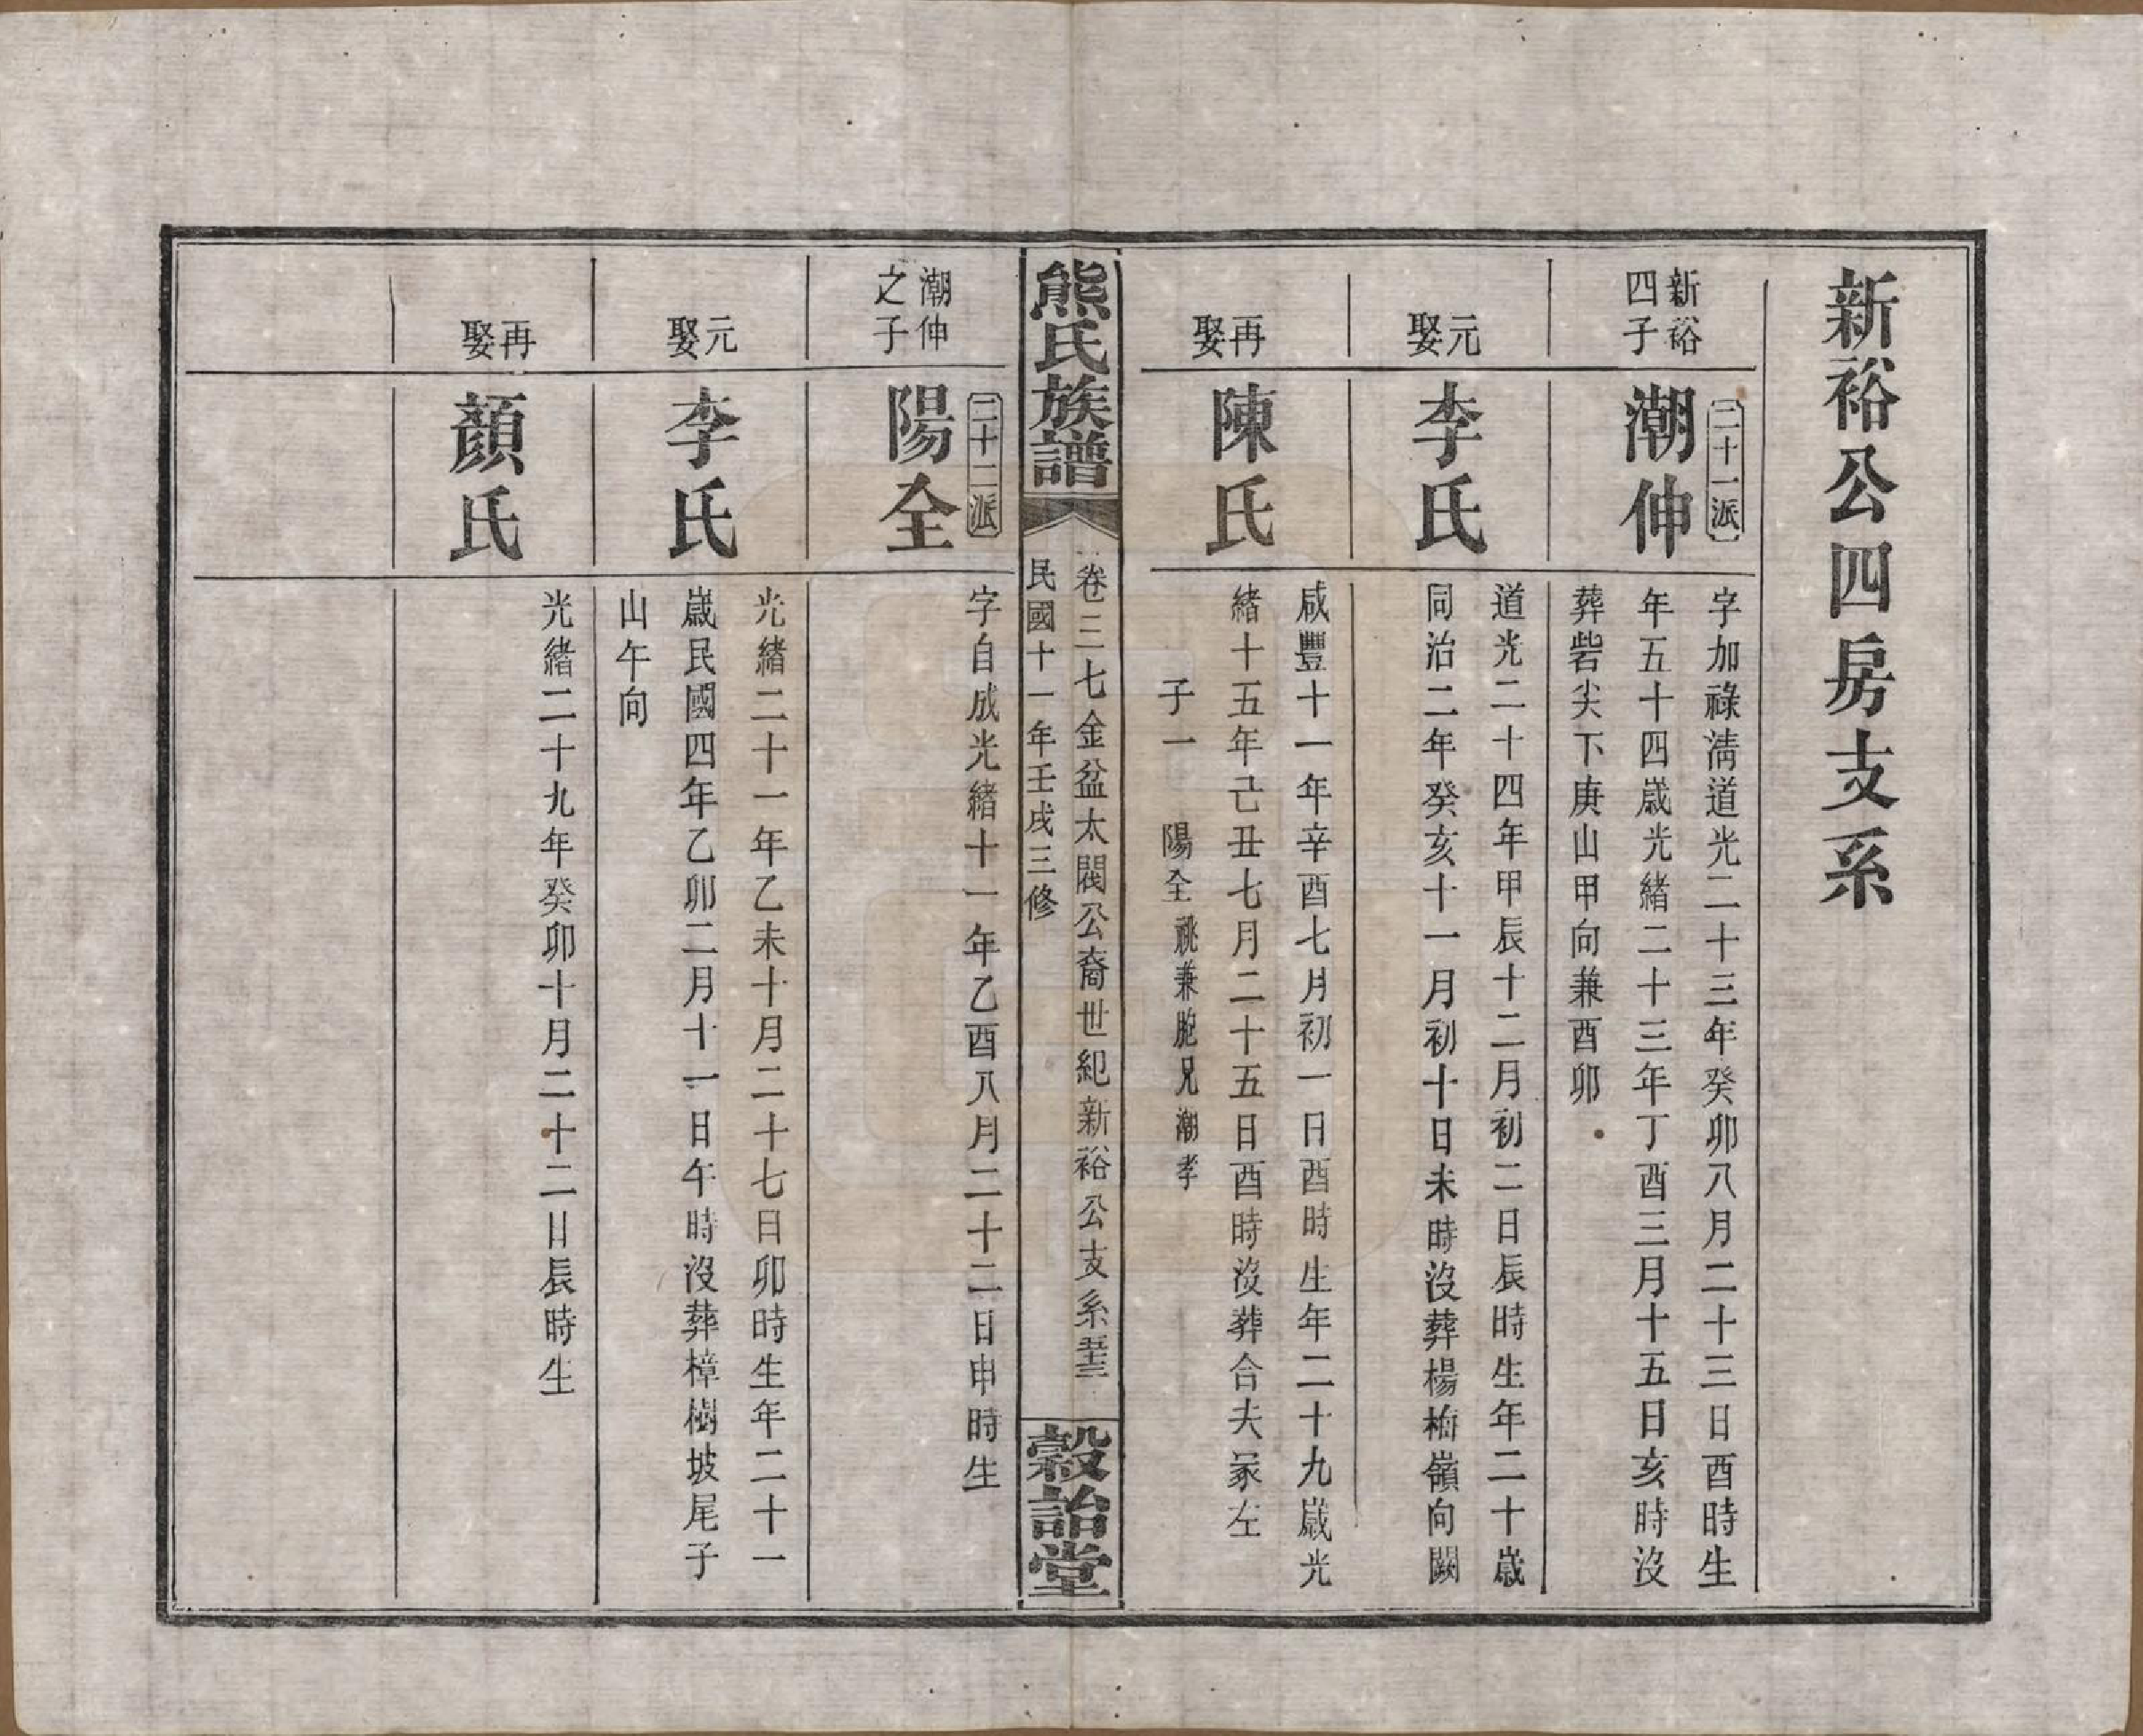 新裕公四房支系
新裕
四子
二十一派
潮伸
字加祿淸道光二十三年癸卯八月二十三日酉時生
年五十四歲光緒二十三年丁酉三月十五日亥時沒
葬砦尖下庚山甲向兼酉卯
元
娶
李氏
道光二十四年甲辰十二月初二日辰時生年二十歲
同治二年癸亥十一月初十日未時沒葬楊梅嶺向闕
再
娶
陳氏
咸豐十一年辛酉七月初一日酉時生年二十九歲光
緒十五年己丑七月二十五日酉時沒葬合夫冢左
子一 陽全 祧兼胞兄潮孝
熊氏族譜
卷三七金盆太閥公裔世紀新裕公支系
民國十一年壬戌三修
穀詒堂
潮伸
之子
二十二派
陽全
字自成光緒十一年乙酉八月二十二日申時生
元
娶
李氏
光緒二十一年乙未十月二十七日卯時生年二十一
歲民國四年乙卯二月十一日午時沒葬樟樹坡尾子
山午向
再
娶
顏氏
光緒二十九年癸卯十月二十二日辰時生